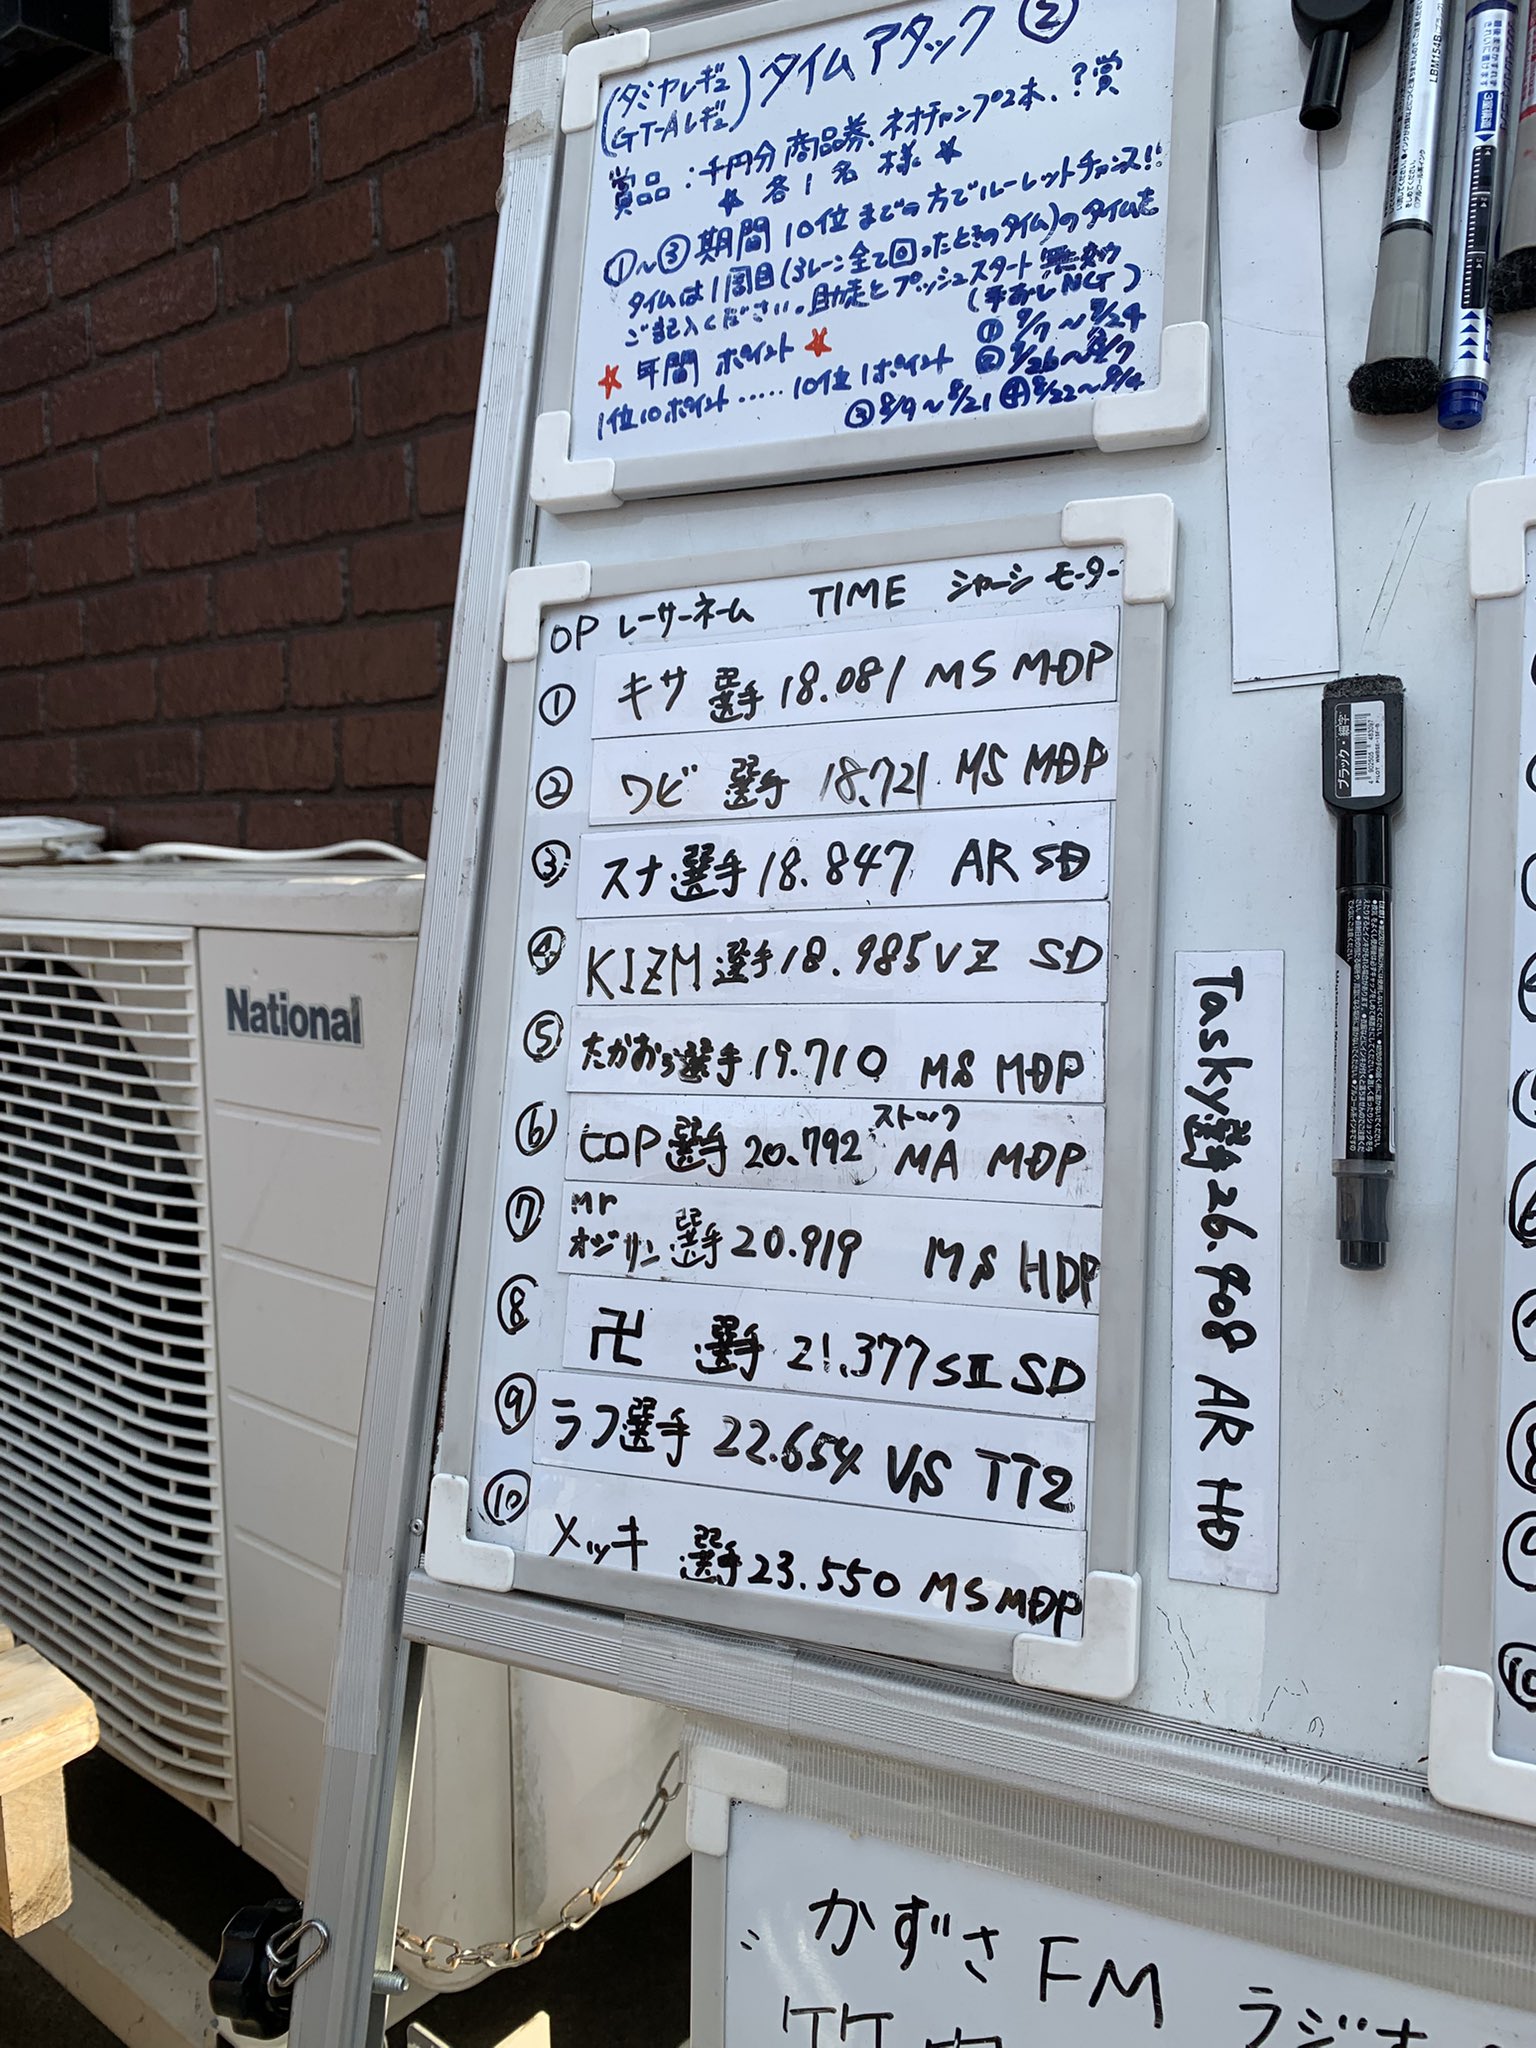 (タミヤレギュ
GT-Aレギュ) タイムアタック ②
賞品:千円分商品券、ネオチャンプ2本、?賞
☆ 各1名様 ☆
①~③期間10位までの方でルーレットチャンス!!
タイムは1周目(3レーン全て回ったときのタイム)のタイムを
ご記入ください。助走とプッシュスタート無効
(手おしNG)
☆ 年間ポイント ☆
1位10ポイント……10位1ポイント
③8/9~8/21
OP レーサーネーム TIME シャーシ モーター
① キサ 選手 18.081 MS MDP
② ワビ 選手 18.721 MS MDP
③ スナ選手 18.847 AR SD
④ KIZM選手 18.985 VZ SD
⑤ たかおう選手 19.710 MS MDP
ストック
⑥ COP選手 20.792 MA MDP
⑦ Mr
オジサン選手 20.919 MS HDP
⑧ 卍 選手 21.377 SⅡ SD
⑨ ラフ選手 22.654 VS TT2
⑩ メッキ 選手 23.550 MS MDP
Tasky選手 26.908 AR HD
National
ブラック・細字
LBM154B
かずさFM
ラジオ